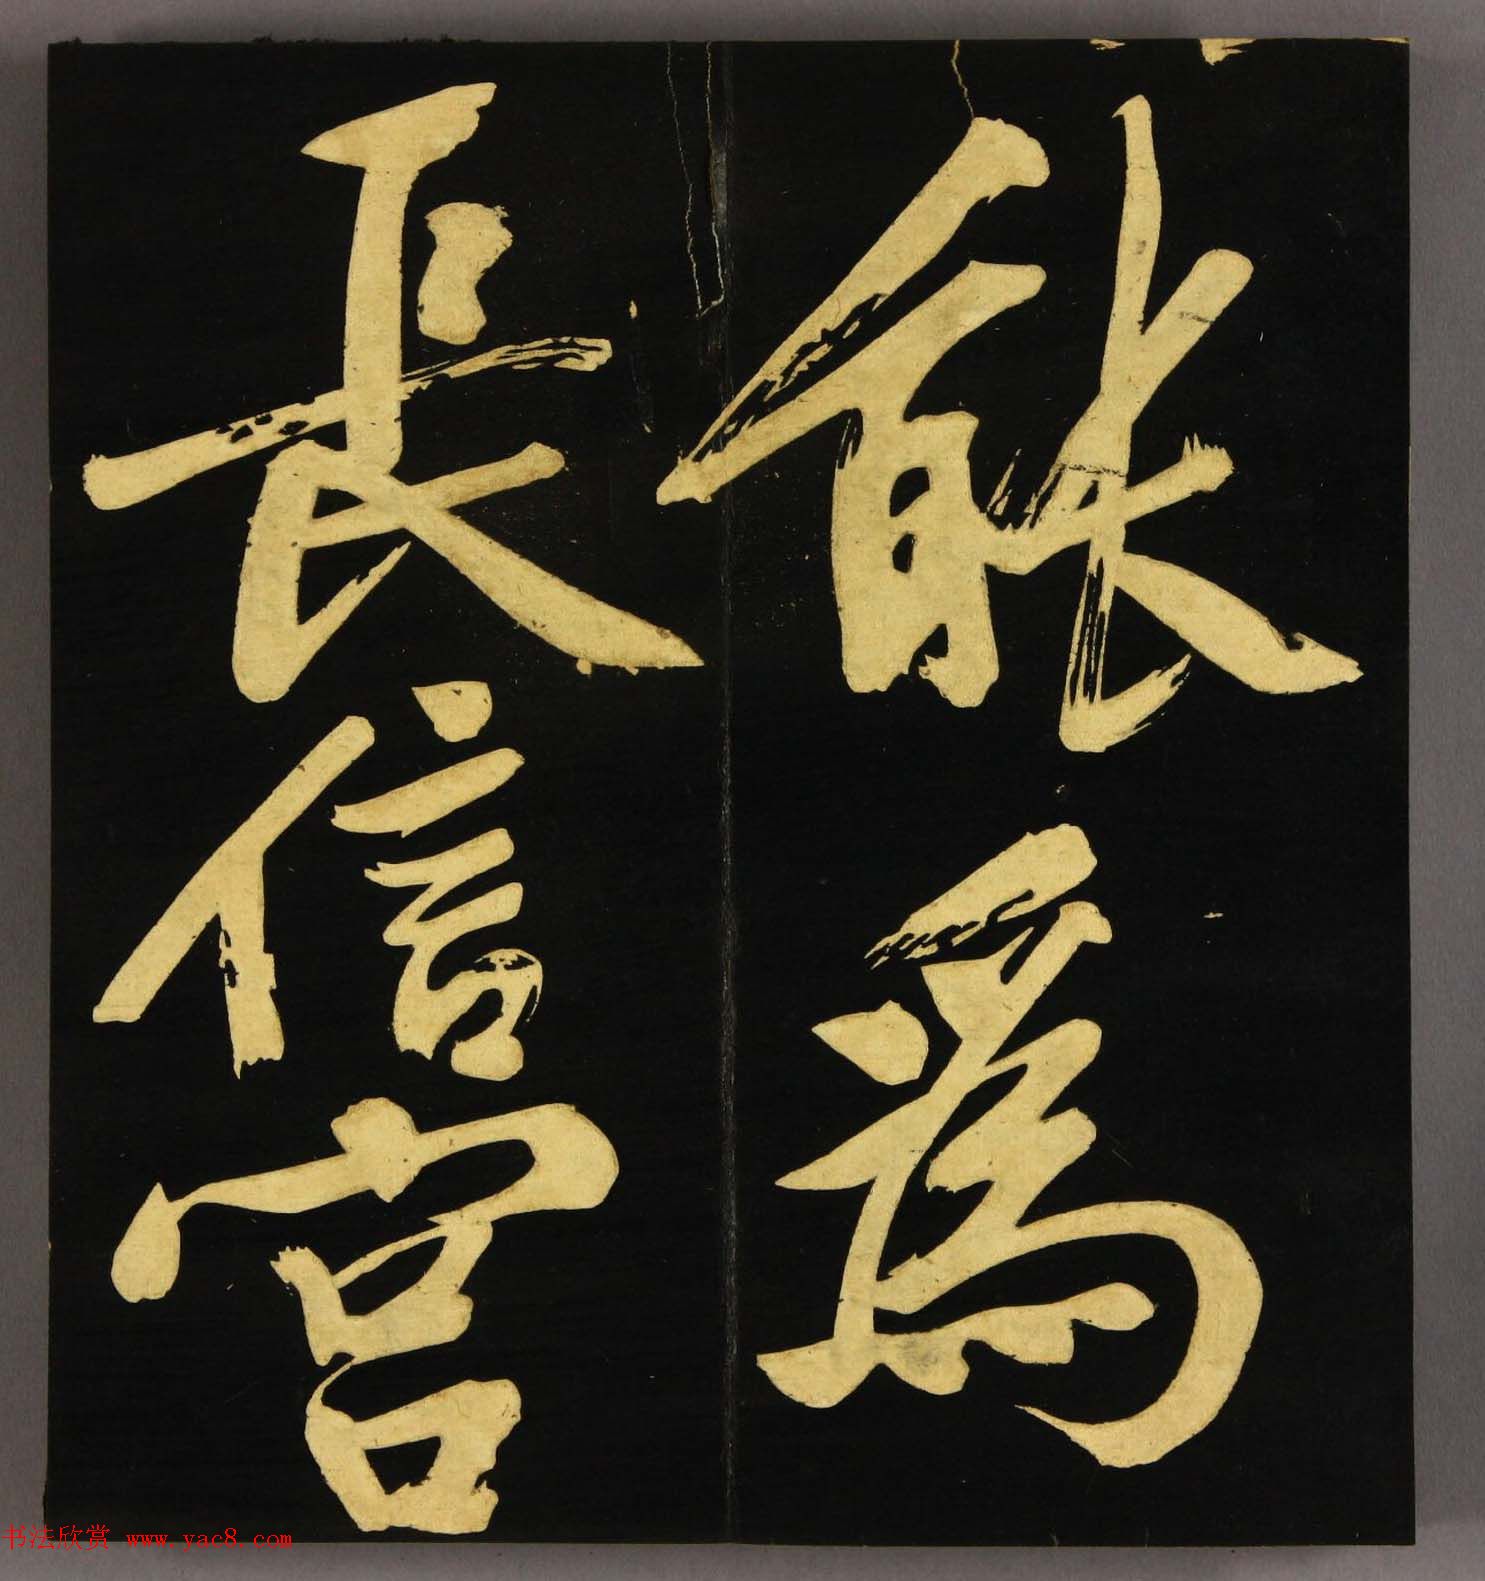 能爲
長信宮
书法欣赏 www.yac8.com